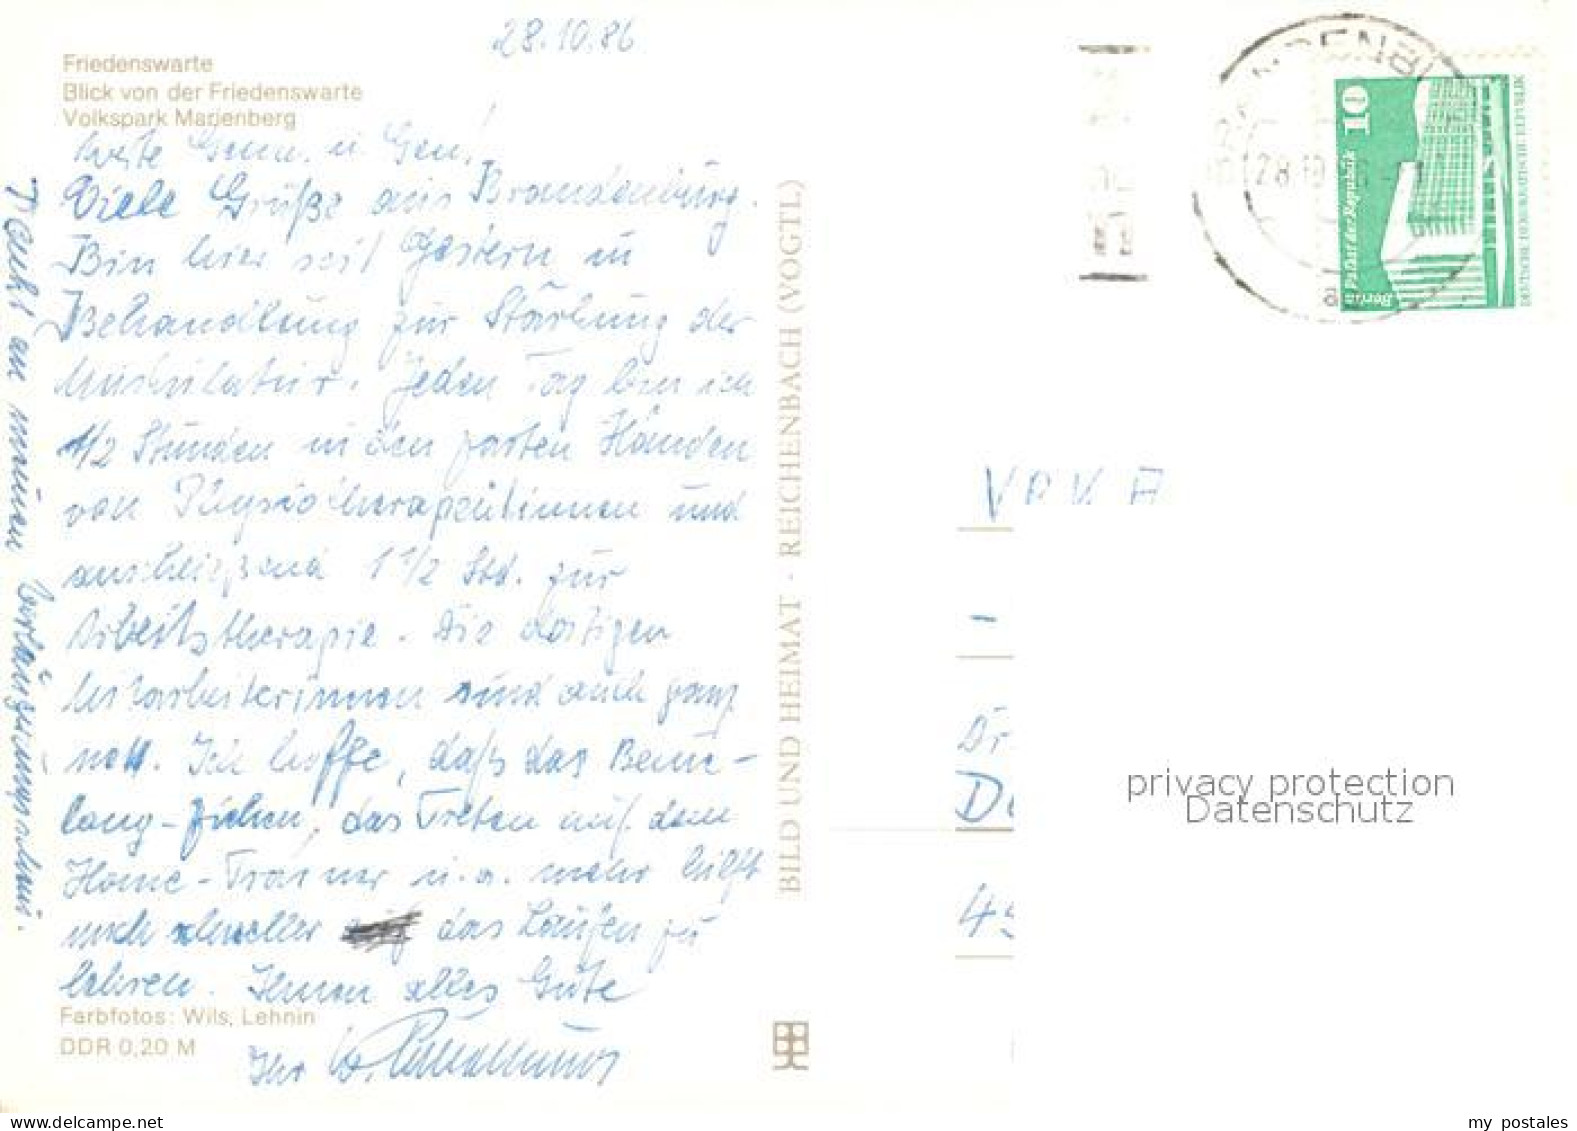 28.10.86
Friedenswarte
Blick von der Friedenswarte
Volkspark Marienberg
Werte Genn. u. Gen.!
Viele Grüße aus Brandenburg.
Bin hier seit gestern in
Behandlung zur Stärkung der
Muskulatur. Jeden Tag bin ich
1/2 Stunden in den zarten Händen
von Physiotherapeutinnen und
anschließend 1 1/2 Std. zur
Arbeitstherapie. Die dortigen
Mitarbeiterinnen sind auch ganz
nett. Ich hoffe, daß das
lang-ziehen, das Treten auf dem
Home-Trainer u.a. mehr hilft
mich schneller das Laufen zu
lehren. Ihnen alles Gute
Ihr
an meinen
Farbfotos: Wils, Lehnin
DDR 0,20 M
BILD UND HEIMAT · REICHENBACH (VOGTL)
10
Berlin Palast der Republik
DEUTSCHE DEMOKRATISCHE REPUBLIK
28.10
VPKA
-
Dr
De
45
privacy protection
Datenschutz
my postales